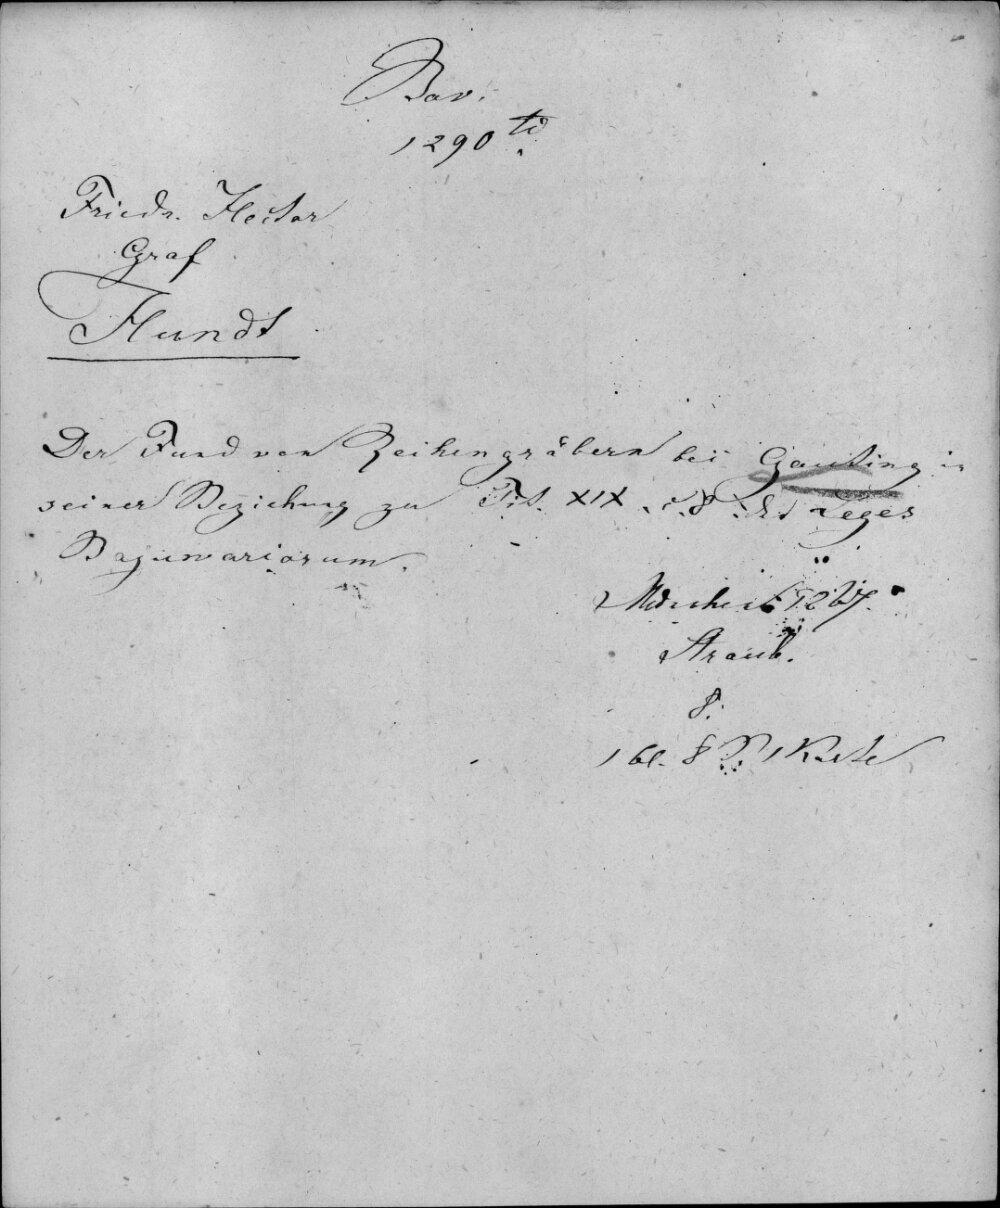 Bav.
1290 td.
Friedr. Hector
Graf
Hundt
Der Fund von Reihengräbern bei Gauting in
seiner Beziehung zu Tit. XIX. c. 8. Leges
Bajuwariorum.
München 1867.
Straub.
8.
1 bl. 8 S. 1 Karte